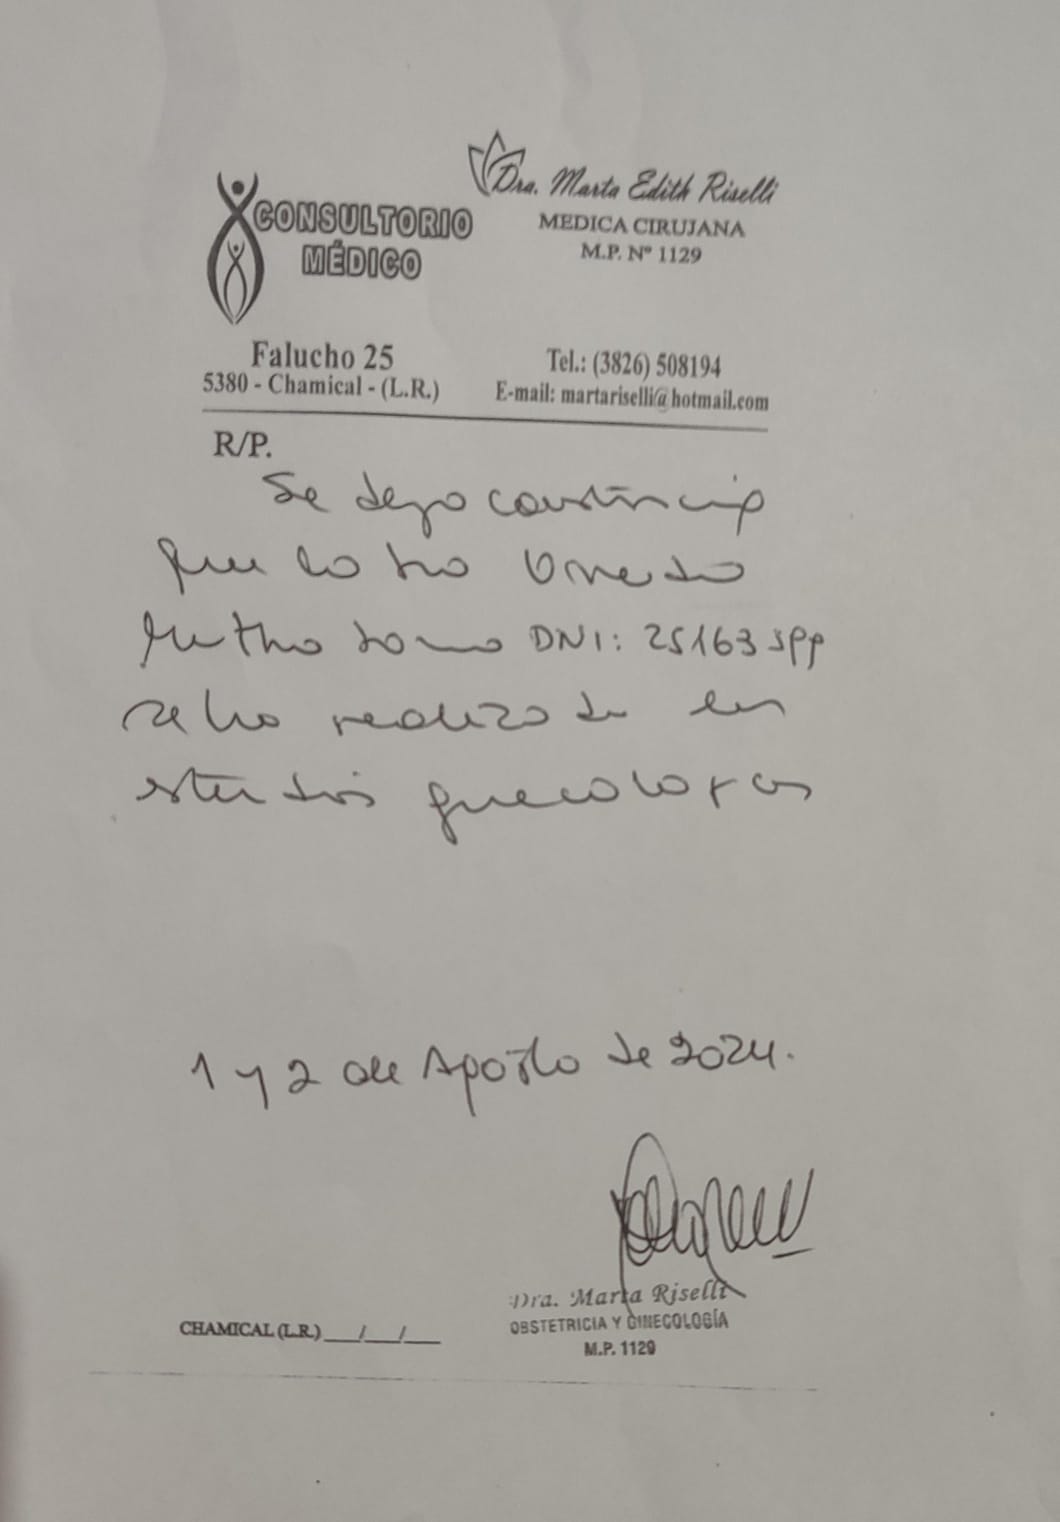 Dra. Marta Edith Riselli
CONSULTORIO
MEDICA CIRUJANA
MÉDICO
M.P. Nº 1129
Falucho 25
Tel.: (3826) 508194
5380 - Chamical - (L.R.)
E-mail: martariselli@hotmail.com
R/P.
Se deja constancia
que la Sra
DNI: 25163
se ha realizado
estudios ginecologicos
1 y 2 de Agosto de 2024.
Dra. Marta Riselli
OBSTETRICIA Y GINECOLOGÍA
CHAMICAL (L.R.) ___/___/___
M.P. 1129